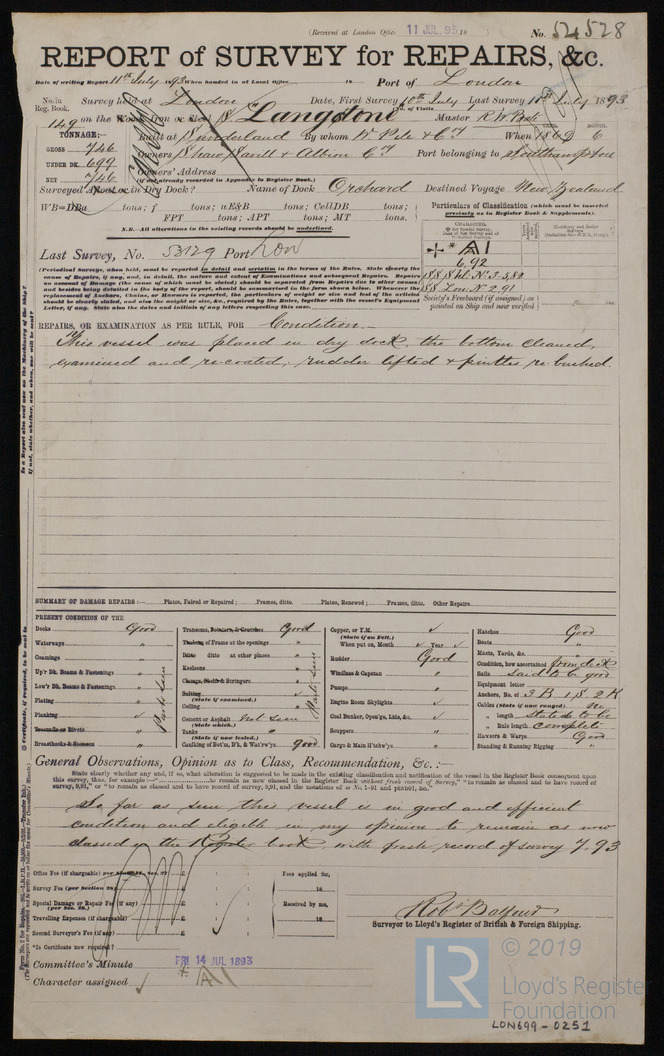 (Received at London Office 11 JUL. 93 18 )
No. 54528
REPORT of SURVEY for REPAIRS, &c.
Date of writing Report 11th July 1893 When handed in at Local Office 18 Port of London
No. in Reg. Book. Survey held at London Date, First Survey 10th July Last Survey 10th July 1893
149 on the Wood, Iron or Steel S "Langstone" Master R W
TONNAGE:— Built at Sunderland By whom W Pile & Co When 1869 6
GROSS 746 Owners Shaw Savill & Albion Co Port belonging to Southampton
UNDER DK. 699 Owners' Address
NET 746 (if not already recorded in Appendix to Register Book.)
Surveyed Afloat or in Dry Dock? Name of Dock Orchard Destined Voyage New Zealand
WB=DBa tons; f tons; uE&B tons; CellDB tons;
FPT tons; APT tons; MT tons.
N.B. All alterations in the existing records should be underlined.
Particulars of Classification (which must be inserted precisely as in Register Book & Supplements).
Last Survey, No. 53129 Port Lon
A1
6,92
SS Lon. No 2.91
Society's Freeboard (if assigned) as painted on Ship and now verified
(Periodical Survey, when held, must be reported in detail and seriatim in the terms of the Rules. State clearly the
cause of Repairs, if any, and, in detail, the nature and extent of Examinations and subsequent Repairs. Repairs
on account of Damage (the cause of which must be stated) should be separated from Repairs due to other causes;
and besides being detailed in the body of the report, should be summarised in the form given below. Whenever the
replacement of Anchors, Chains, or Hawsers is reported, the particulars of weight or size and test of the articles
should be clearly stated, and also the weight or size, &c., required by the Rules, together with the vessel's Equipment
Letter, if any. State also the dates and initials of any letters respecting this case.
REPAIRS, OR EXAMINATION AS PER RULE, FOR Condition.—
This vessel was placed in dry dock, the bottom cleaned,
examined and re-coated, rudder lifted & pintles re-bushed.
SUMMARY OF DAMAGE REPAIRS :— Plates, Faired or Repaired; Frames, ditto. Plates, Renewed; Frames, ditto. Other Repairs
PRESENT CONDITION OF THE
Decks Good
Waterways "
Coamings "
Up'r Dk. Beams & Fastenings "
Low'r Dk. Beams & Fastenings "
Plating "
Planking "
Treenails or Rivets "
Breasthooks & Stemson "
Parts seen
Transoms, Pointers, & Crutches Good
Timbers of Frame at the openings "
Ditto ditto at other places "
Keelsons "
Clamps, Shelf & Stringers "
Salting (State if examined.)
Ceiling "
Cement or Asphalt Not seen
(State which.)
Tanks
(State if now tested.)
Caulking of Bot'm, D'k, & Wat'rw'ys Good
Parts seen
Copper, or Y.M. ✓
(State if on Felt.)
When put on, Month ✓ Year ✓
Rudder Good
Windlass & Capstan "
Pumps "
Engine Room Skylights ✓
Coal Bunker, Open'gs, Lids, &c. ✓
Scuppers "
Cargo & Main H'tchw'ys "
Hatches Good
Boats "
Masts, Yards, &c. "
Condition, how ascertained from deck
Sails said to be good
Equipment letter
Anchors, No. of 3 B 1 S 2 K
Cables (State if now ranged) no
" length stated to be
" Rule length complete
Hawsers & Warps Good
Standing & Running Rigging "
General Observations, Opinion as to Class, Recommendation, &c. :—
State clearly whether any and, if so, what alteration is suggested to be made in the existing classification and notification of the vessel in the Register Book consequent upon
this survey, thus, for example:—"............to remain as now classed in the Register Book without fresh record of Survey," "to remain as classed and to have record of
survey, 9,91," or "to remain as classed and to have record of survey, 9,91, and the notations of
So far as seen this vessel is in good and efficient
condition and eligible in my opinion to remain as now
classed in the Register book with fresh record of survey 7.93
Office Fee (if chargeable) £ : :
Survey Fee (per Section 28.) £ : :
Special Damage or Repair Fee (if any) (per Sec. 28.) £ : :
Travelling Expenses (if chargeable) £ : :
Second Surveyor's Fee (if any) £ : :
*Is Certificate now required?
Fees applied for, 18
Received by me, 18
Robt Balfour
Surveyor to Lloyd's Register of British & Foreign Shipping.
Committee's Minute FRI 14 JUL 1893
Character assigned A1
© 2019
LR Lloyd's Register
Foundation
LON699-0251